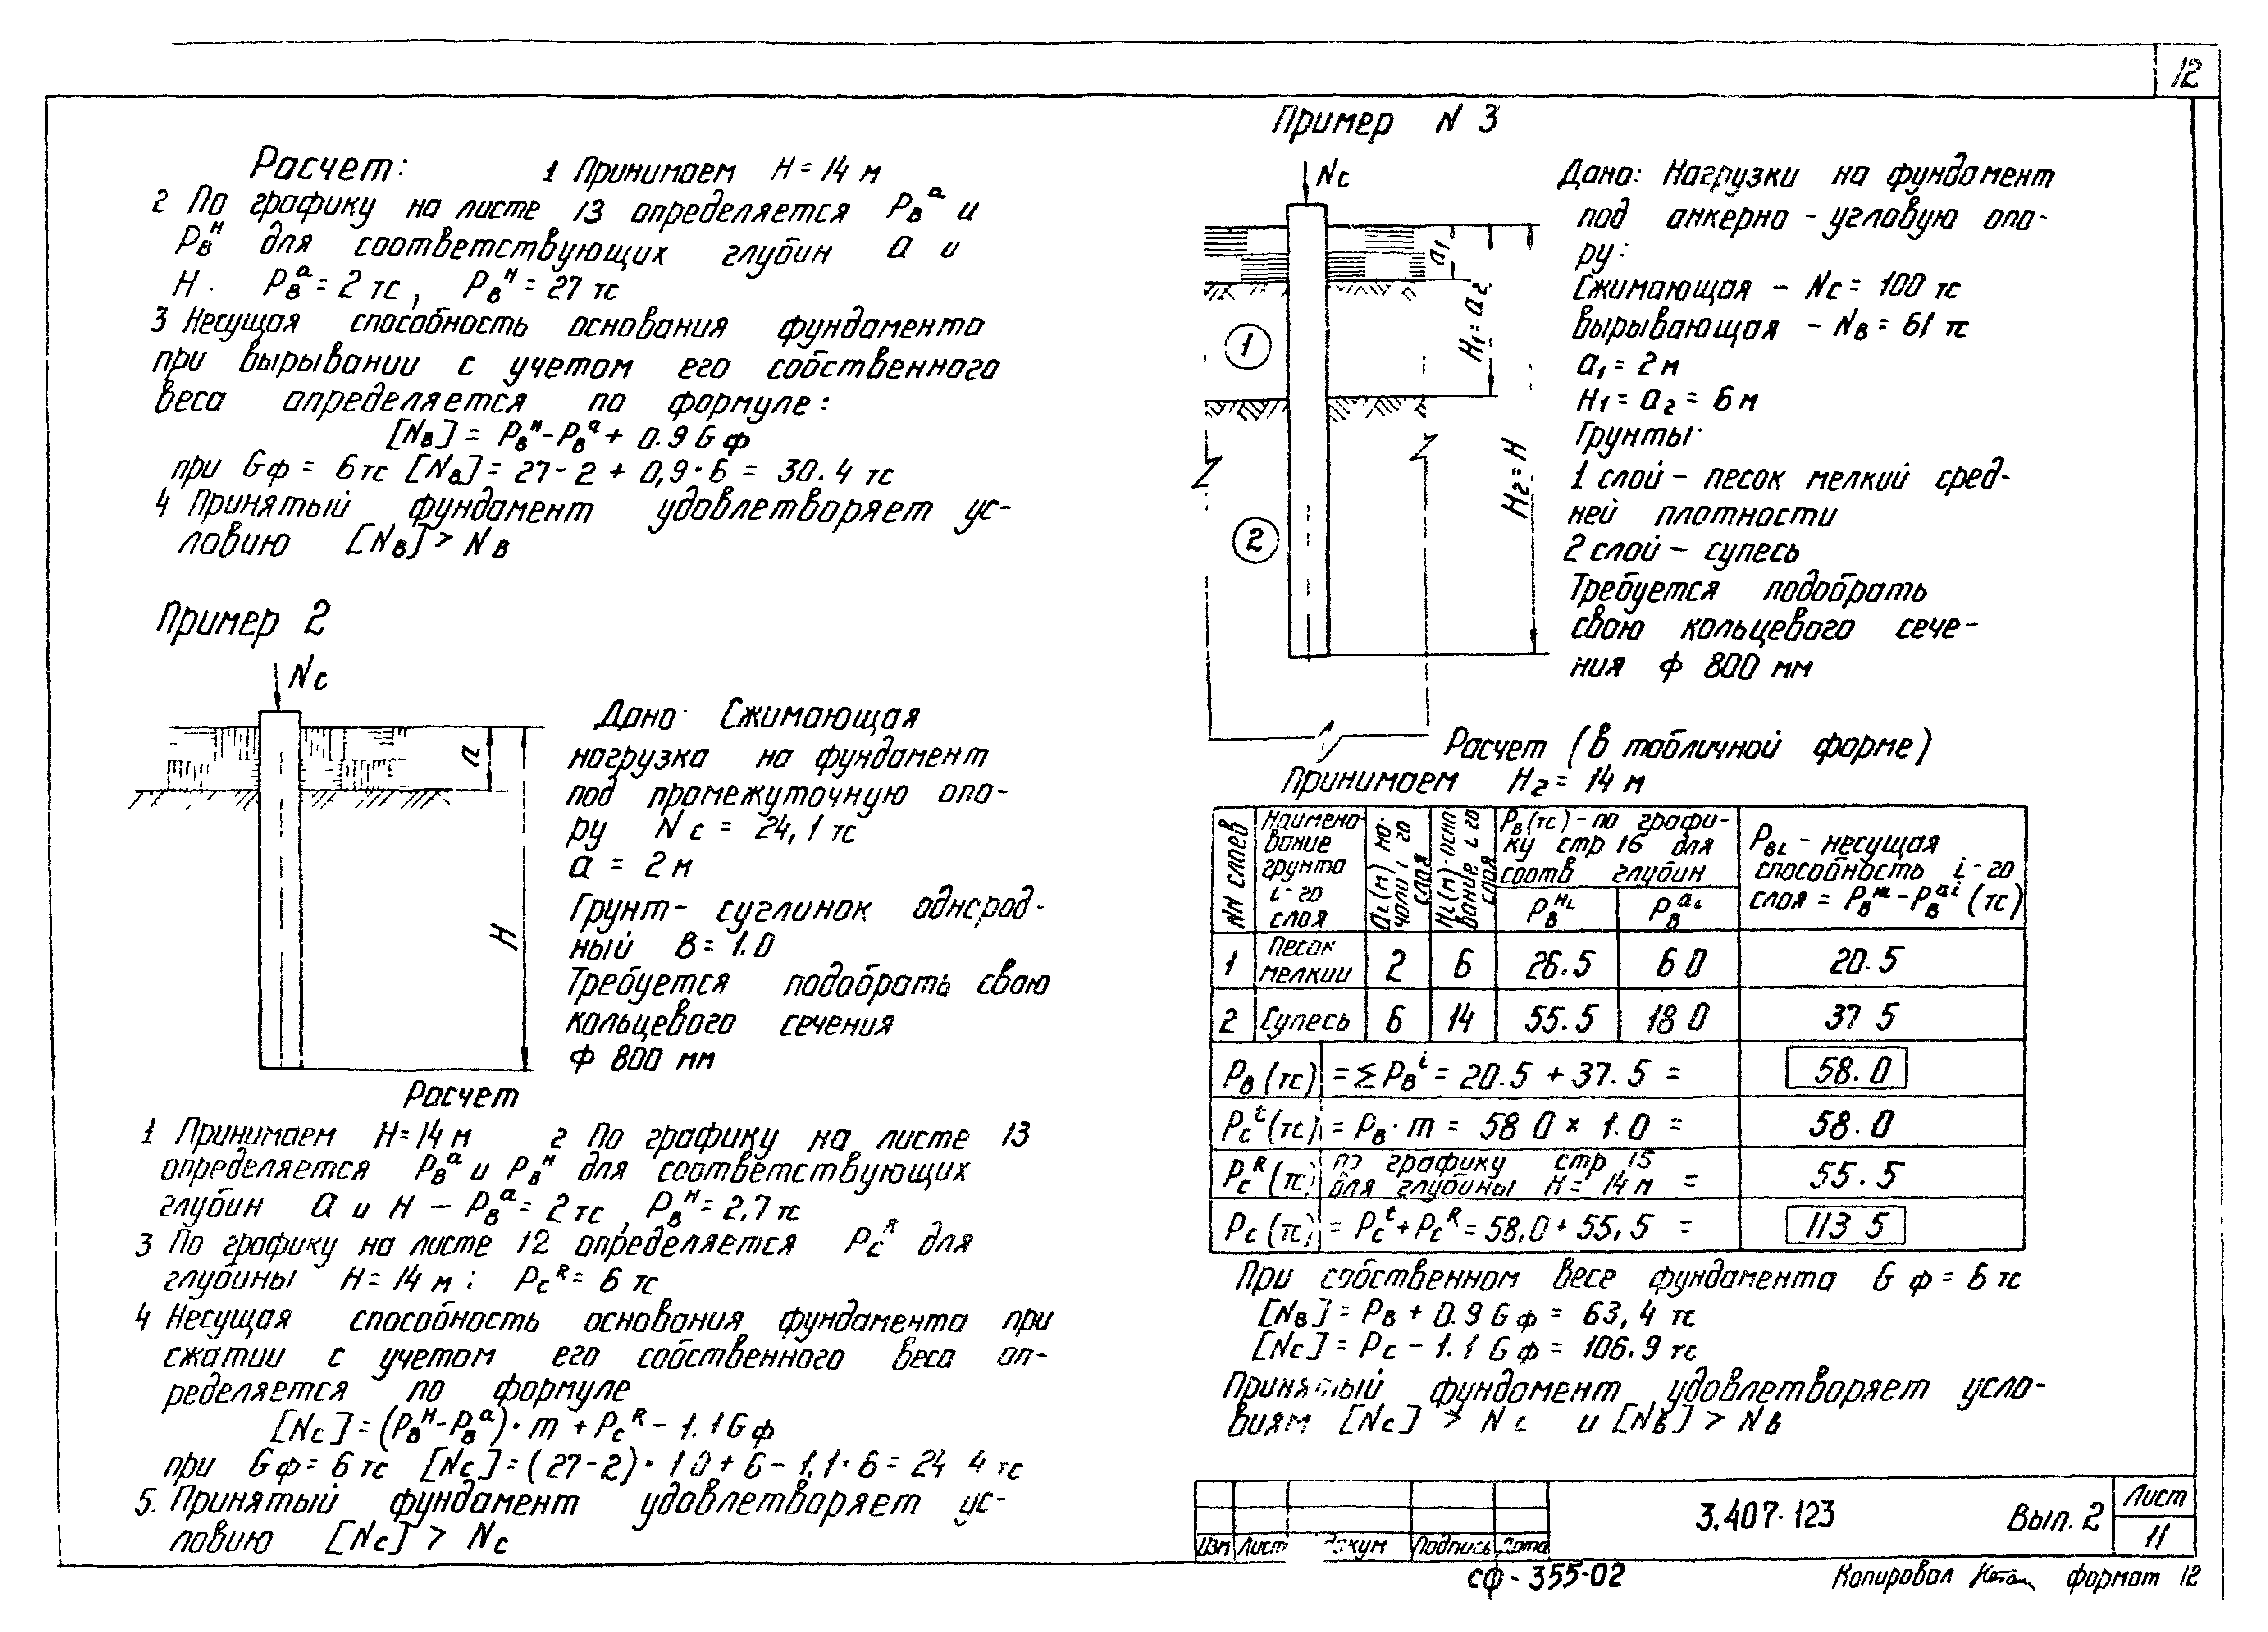 12
Расчет: 1 Принимаем H = 14 м
2 По графику на листе 13 определяется Pв^a и
Pв^н для соответствующих глубин а и
H. Pв^a = 2 тс, Pв^н = 27 тс
3 Несущая способность основания фундамента
при вырывании с учетом его собственного
веса определяется по формуле:
[Nв] = Pв^н - Pв^a + 0.9 Gф
при Gф = 6 тс [Nв] = 27 - 2 + 0,9 · 6 = 30.4 тс
4 Принятый фундамент удовлетворяет ус-
ловию [Nв] > Nв
Пример 2
Nс
а
H
Дано Сжимающая
нагрузка на фундамент
под промежуточную опо-
ру Nс = 24,1 тс
а = 2 м
Грунт - суглинок однород-
ный В = 1.0
Требуется подобрать сваю
кольцевого сечения
ф 800 мм
Расчет
1 Принимаем H = 14 м 2 По графику на листе 13
определяется Pв^a и Pв^н для соответствующих
глубин а и H - Pв^a = 2 тс, Pв^н = 2,7 тс
3 По графику на листе 12 определяется Pс^R для
глубины H = 14 м: Pс^R = 6 тс
4 Несущая способность основания фундамента при
сжатии с учетом его собственного веса оп-
ределяется по формуле
[Nс] = (Pв^н - Pв^a) · m + Pс^R - 1.1 Gф
при Gф = 6 тс [Nс] = (27 - 2) · 1 0 + 6 - 1,1 · 6 = 24 4 тс
5. Принятый фундамент удовлетворяет ус-
ловию [Nс] > Nс
Пример N 3
Nс
а1
H1 = а2
H2 = H
1
2
Дано: Нагрузки на фундамент
под анкерно - угловую опо-
ру:
Сжимающая - Nс = 100 тс
вырывающая - Nв = 61 тс
а1 = 2 м
H1 = а2 = 6 м
Грунты
1 слой - песок мелкий сред-
ней плотности
2 слой - супесь
Требуется подобрать
сваю кольцевого сече-
ния ф 800 мм
Расчет (в табличной форме)
Принимаем H2 = 14 м
NN слоев
Наимено-
вание
грунта
i - го
слоя
аi (м) на-
чало i го
слоя
Hi (м) - осно
вание i го
слоя
Pв (тс) - по графи-
ку стр 16 для
соотв глубин
Pв^Hi Pв^ai
Pвi - несущая
способность i - го
слоя = Pв^Hi - Pв^ai (тс)
1 Песок мелкии 2 6 26.5 6 0 20.5
2 Супесь 6 14 55.5 18 0 37 5
Pв (тс) = Σ Pв^i = 20.5 + 37.5 = 58.0
Pс^t (тс) = Pв · m = 58 0 × 1.0 = 58.0
Pс^R (тс) по графику стр 15
для глубины H = 14 м = 55.5
Pс (тс) = Pс^t + Pс^R = 58,0 + 55,5 = 113 5
При собственном весе фундамента Gф = 6 тс
[Nв] = Pв + 0.9 Gф = 63,4 тс
[Nс] = Pс - 1.1 Gф = 106.9 тс
Принятый фундамент удовлетворяет усло-
виям [Nс] > Nс и [Nв] > Nв
3.407-123 Вып. 2
Лист
11
Изм Лист докум Подпись Дата
сф - 355-02
Копировал формат 12